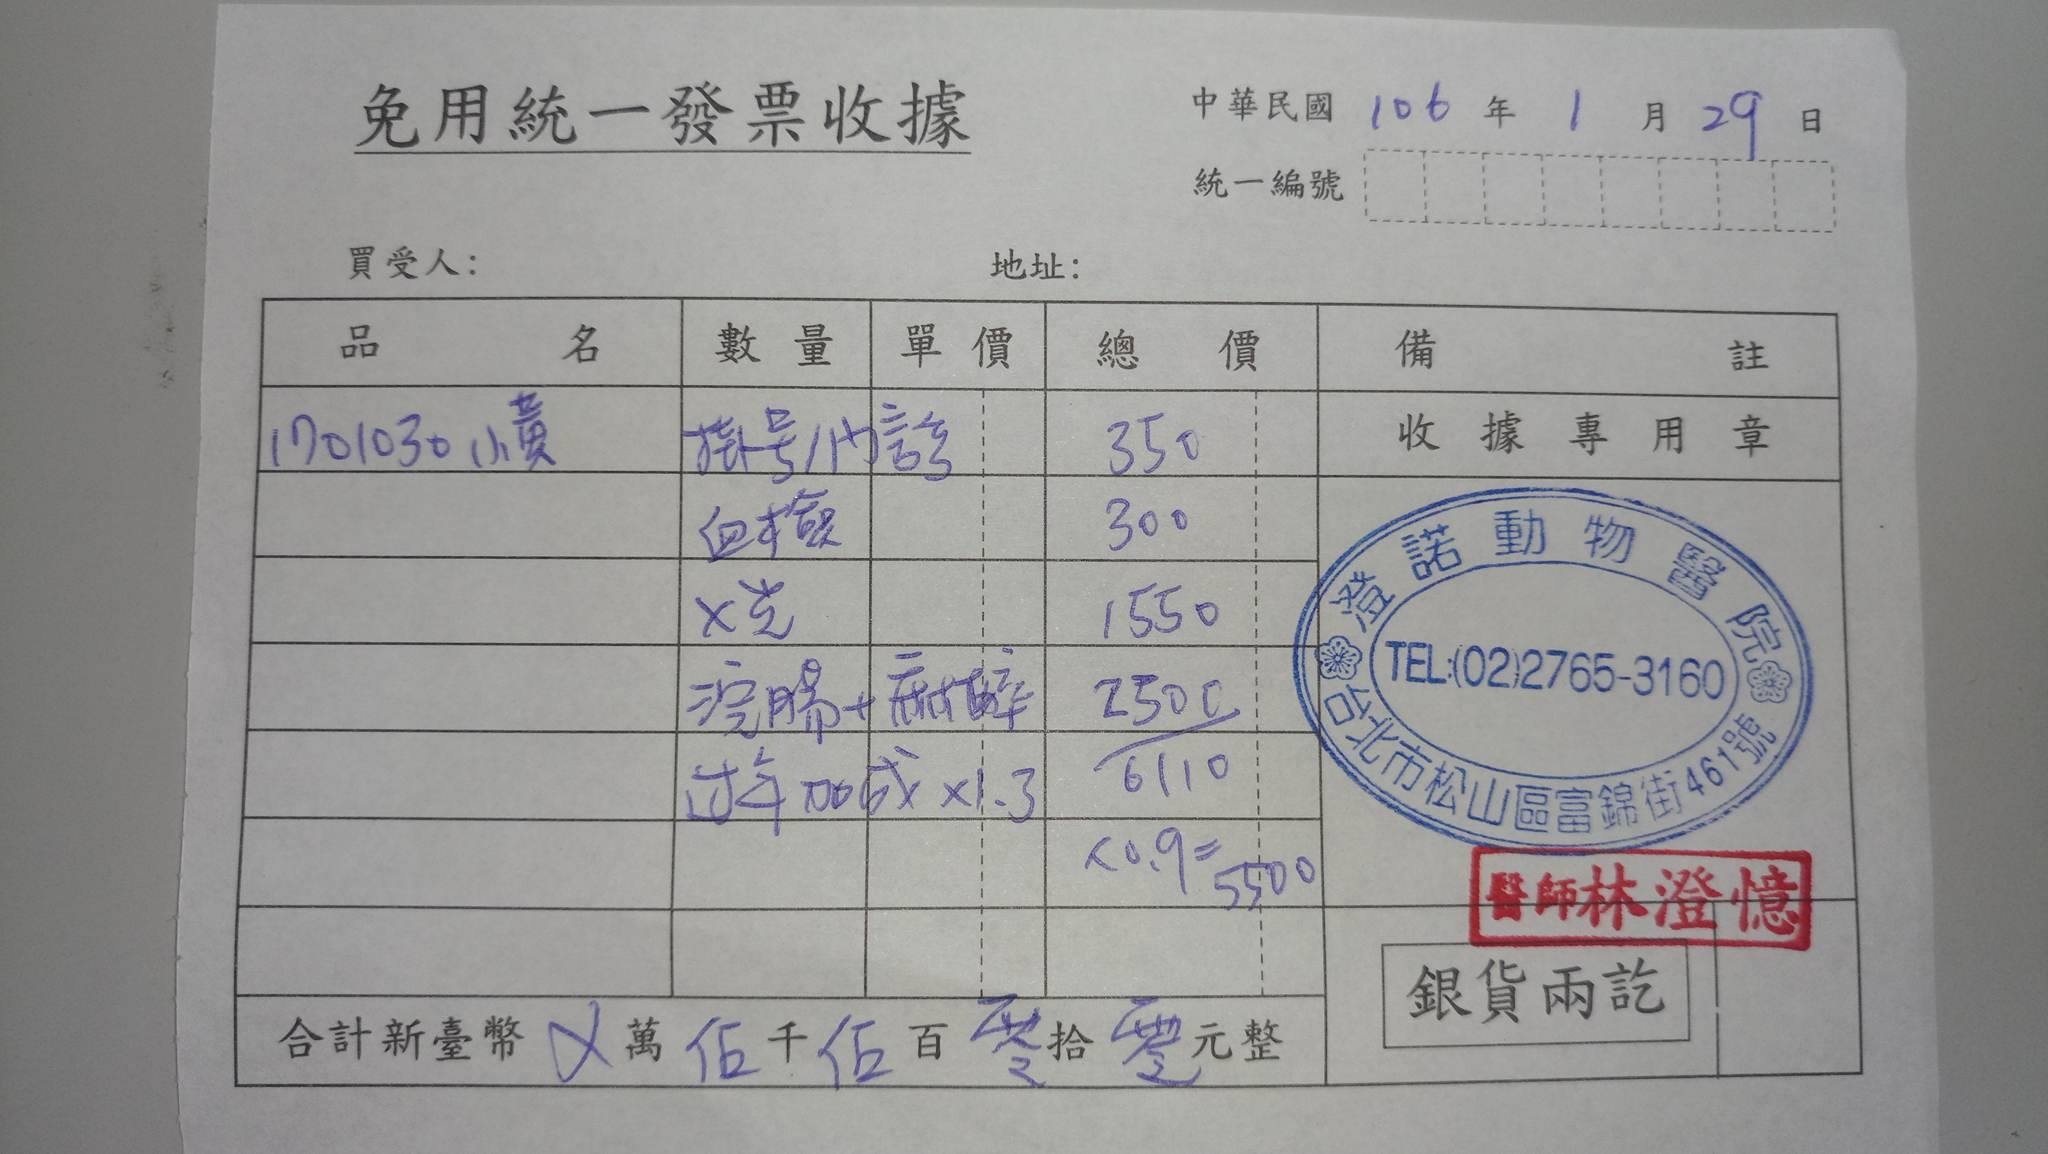 免用統一發票收據
中華民國 106 年 1 月 29 日
統一編號
買受人：
地址：
品名 數量 單價 總價 備註
收據專用章
1701030 小黃 掛号/门診 350
血檢 300
X光 1550
浣腸+麻醉 2500
过年加成 x1.3 6110
x0.9=5500
澄諾動物醫院
TEL:(02)2765-3160
台北市松山區富錦街461號
醫師林澄憶
銀貨兩訖
合計新臺幣 X 萬 伍 千 伍 百 零 拾 零 元整